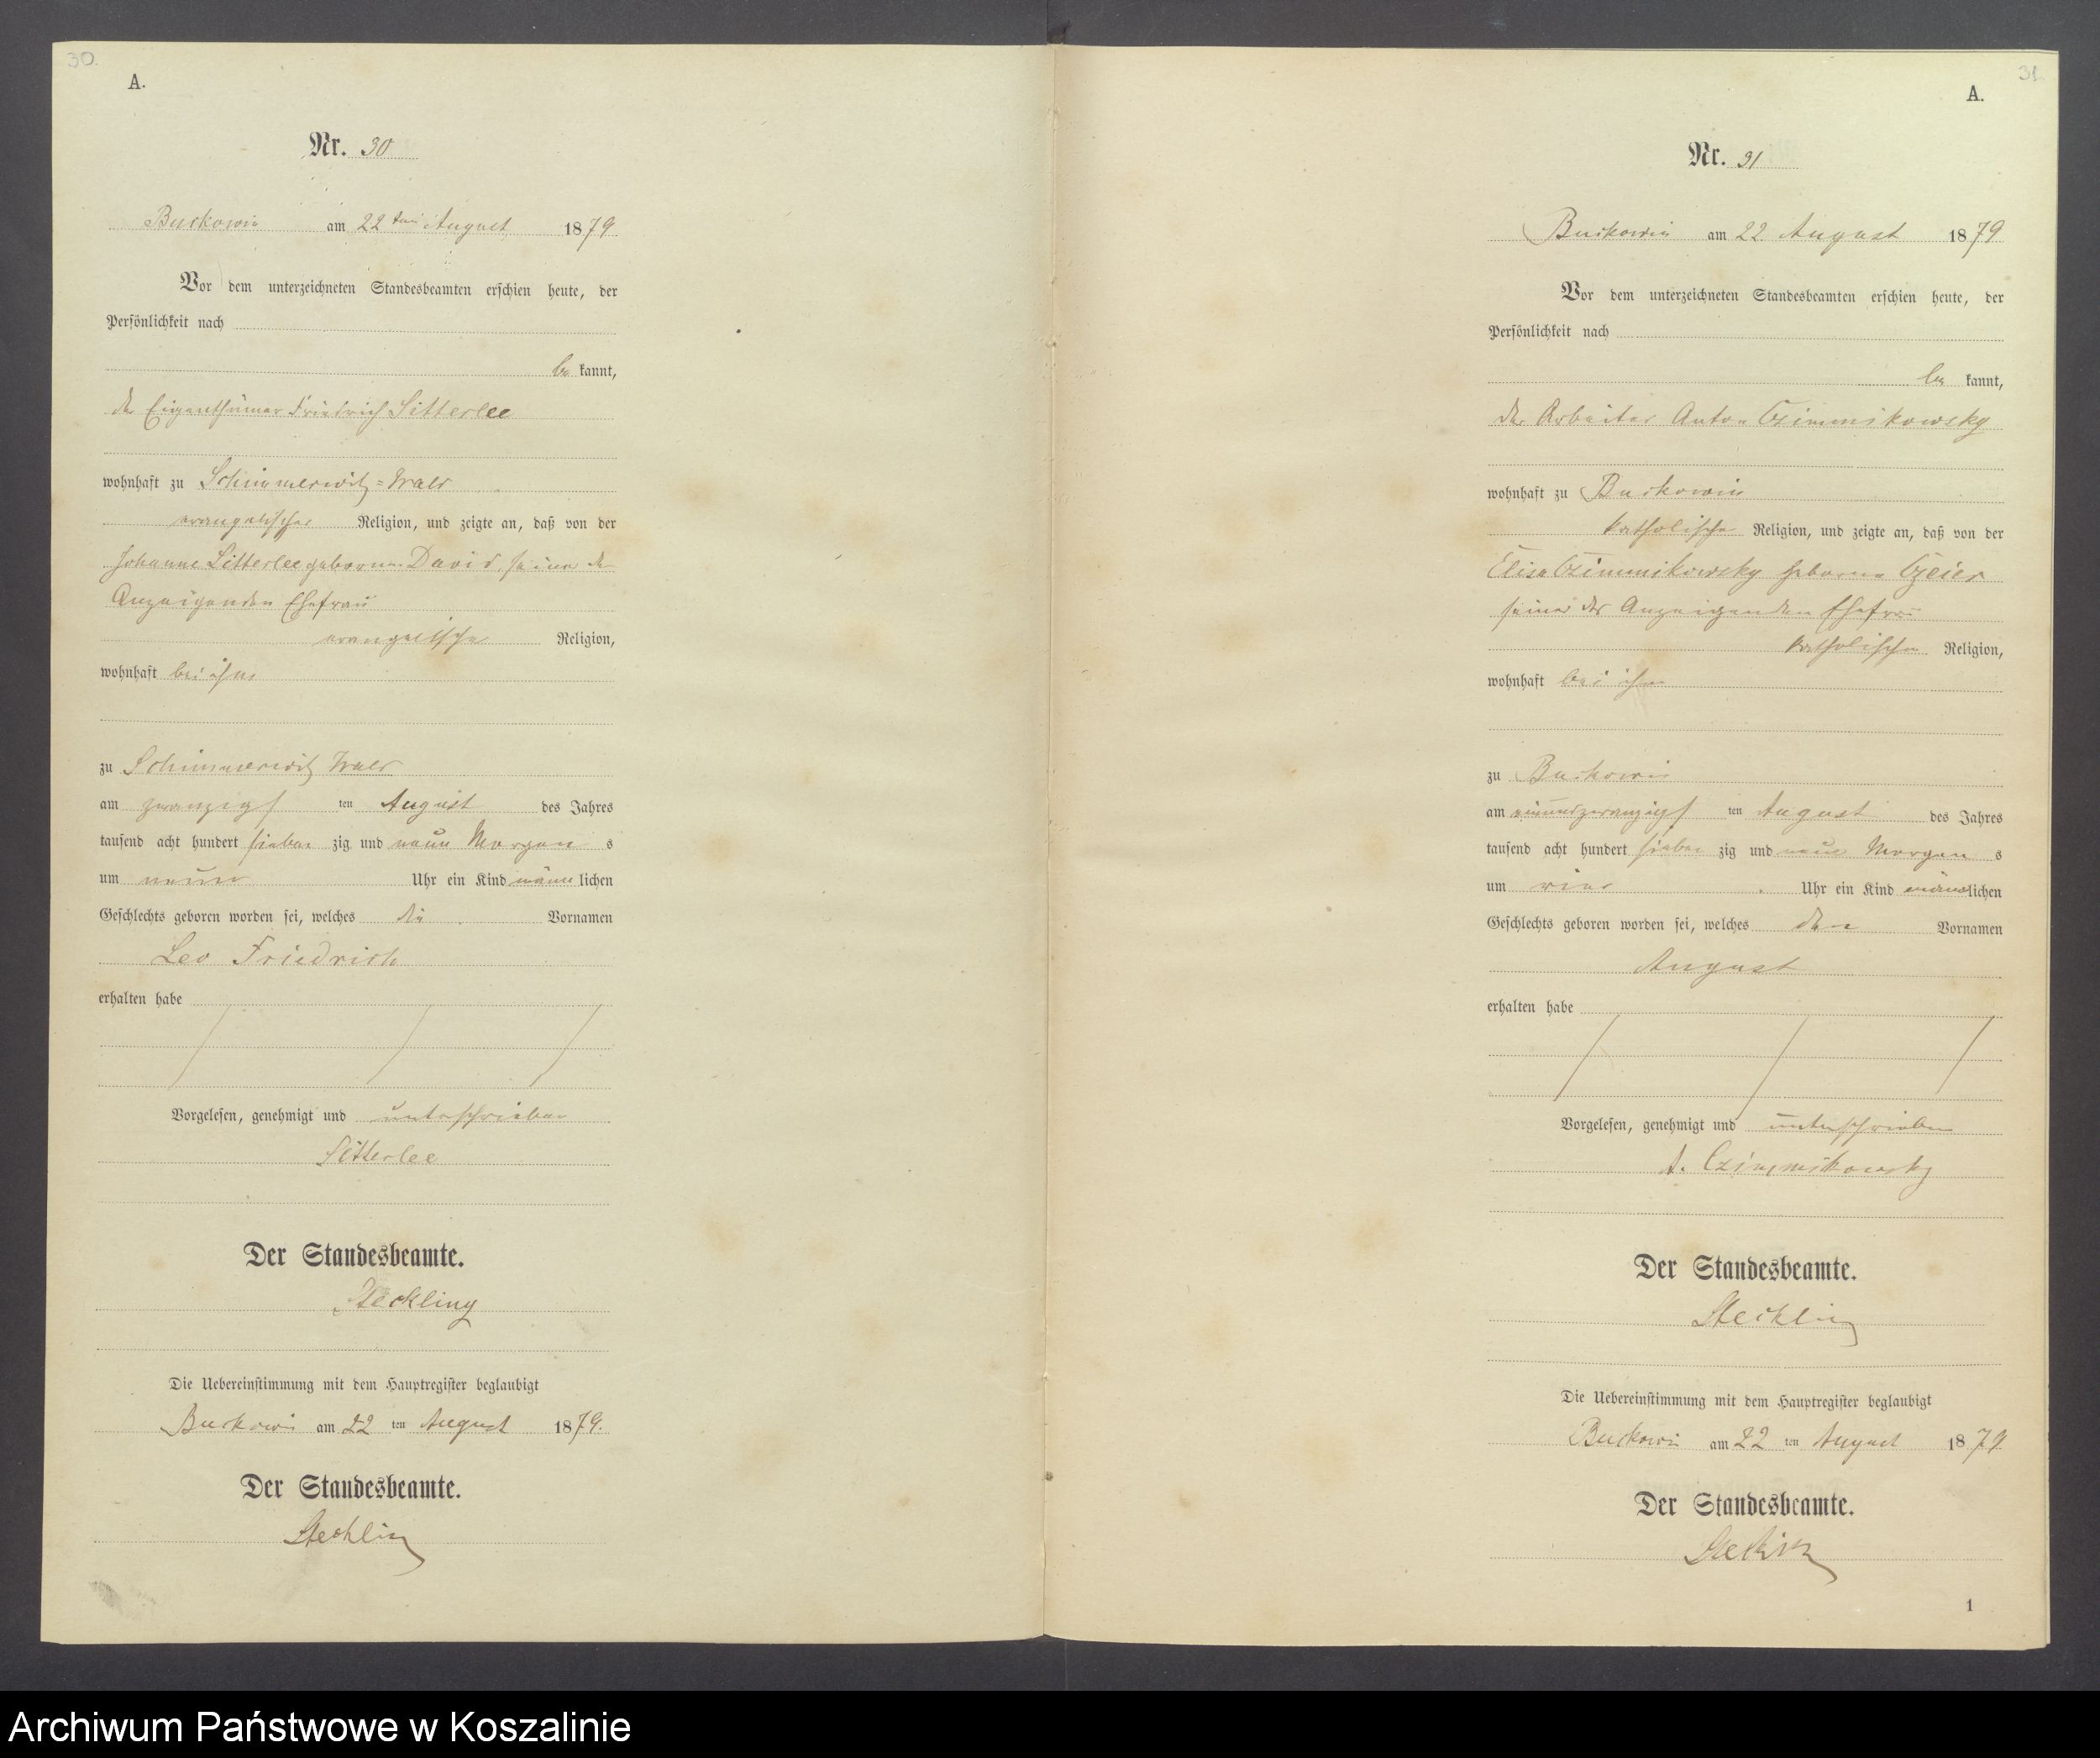 30.
A.
Nr. 30
Buckowin am 22ten August 1879
Vor dem unterzeichneten Standesbeamten erschien heute, der
Persönlichkeit nach
be kannt,
der Eigenthümer Friedrich Sitterlee
wohnhaft zu Schimmerwitz=
evangelischer Religion, und zeigte an, daß von der
Johanne Sitterlee geborne David, seiner des
Anzeigenden Ehefrau
evangelischer Religion,
wohnhaft bei ihm
zu Schimmerwitz
am zwanzigs ten August des Jahres
tausend acht hundert sieben zig und neun Morgen s
um neun Uhr ein Kind männ lichen
Geschlechts geboren worden sei, welches die Vornamen
Leo Friedrich
erhalten habe
Vorgelesen, genehmigt und unterschrieben
Sitterlee
Der Standesbeamte.
Steckling
Die Uebereinstimmung mit dem Hauptregister beglaubigt
Buckowin am 22 ten August 1879.
Der Standesbeamte.
Steckling
31
A.
Nr. 31
Buckowin am 22 August 1879
Vor dem unterzeichneten Standesbeamten erschien heute, der
Persönlichkeit nach
be kannt,
der Arbeiter Anton Czimmikowsky
wohnhaft zu Buckowin
katholischer Religion, und zeigte an, daß von der
Elisa Czimmikowsky geborne
seiner des Anzeigenden Ehefrau
katholischer Religion,
wohnhaft bei ihm
zu Buckowin
am einundzwanzigs ten August des Jahres
tausend acht hundert sieben zig und neun Morgen s
um vier Uhr ein Kind männ lichen
Geschlechts geboren worden sei, welches den Vornamen
August
erhalten habe
Vorgelesen, genehmigt und unterschrieben
A. Czimmikowsky
Der Standesbeamte.
Steckling
Die Uebereinstimmung mit dem Hauptregister beglaubigt
Buckowin am 22 ten August 1879.
Der Standesbeamte.
Steckling
1
Archiwum Państwowe w Koszalinie